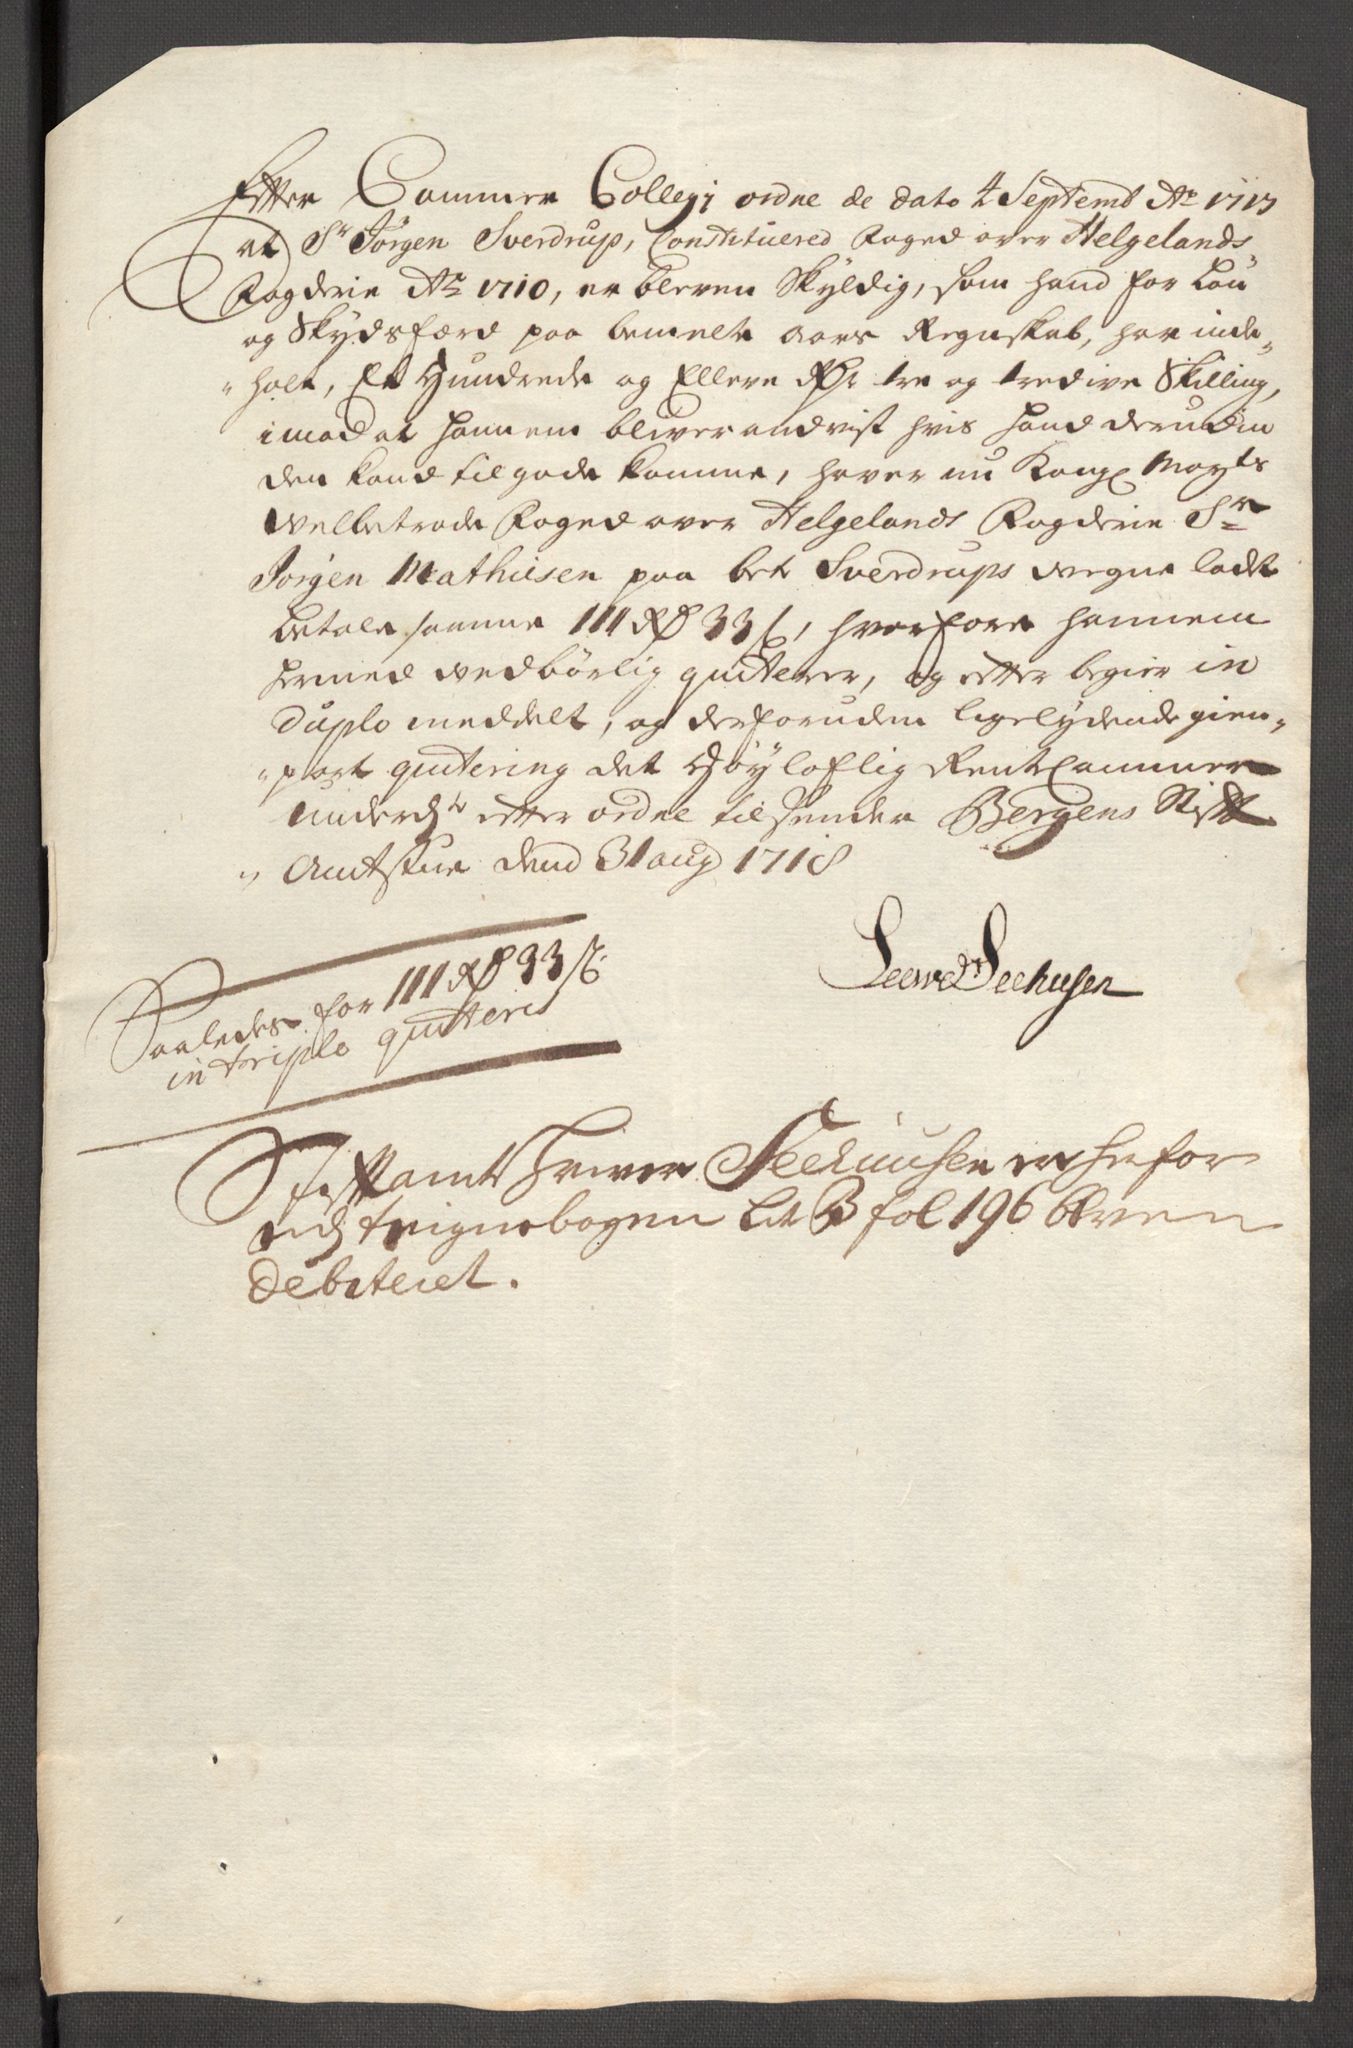 Efter Cammer Collegj ordre de dato 4 Septemb Ao 1717
at Sr Jørgen Sverdrup, Constituered Foged over Helgelands
Fogderie Ao 1710, er bleven Skyldig, som hand for Løn
og Skydsfærd paa bemelte aars Regnskab, har inde„
„holt, Et Hundrede og Elleve Rdr tre og tredive Skilling,
imod at hannem bliver andvist hvis hand deruden
den kand tilgode komme, haver nu Kongl Mayts
velbetrode Foged over Helgelands Fogderie Sr
Jørgen Mathiesen paa bete Sverdrups vegne ladet
betale samme 111 Rd 33 s, hvorfore hannem
hermed vedbørlig qvitterer, og efter begier in
duplo meddelt, og desforuden ligelydende gien„
„part qvitering det Høyloflig RentCammer
under efter ordre tilsender Bergens Stift
„ Amtstue dend 31 aug 1718
Leew Seehusen
Saaledes for 111 Rd 33 s
in triplo qvitteret
Stiftamtskriver Seehuusen er herfor
ved teignebogen Lit B fol 196 bleven
debiteret.